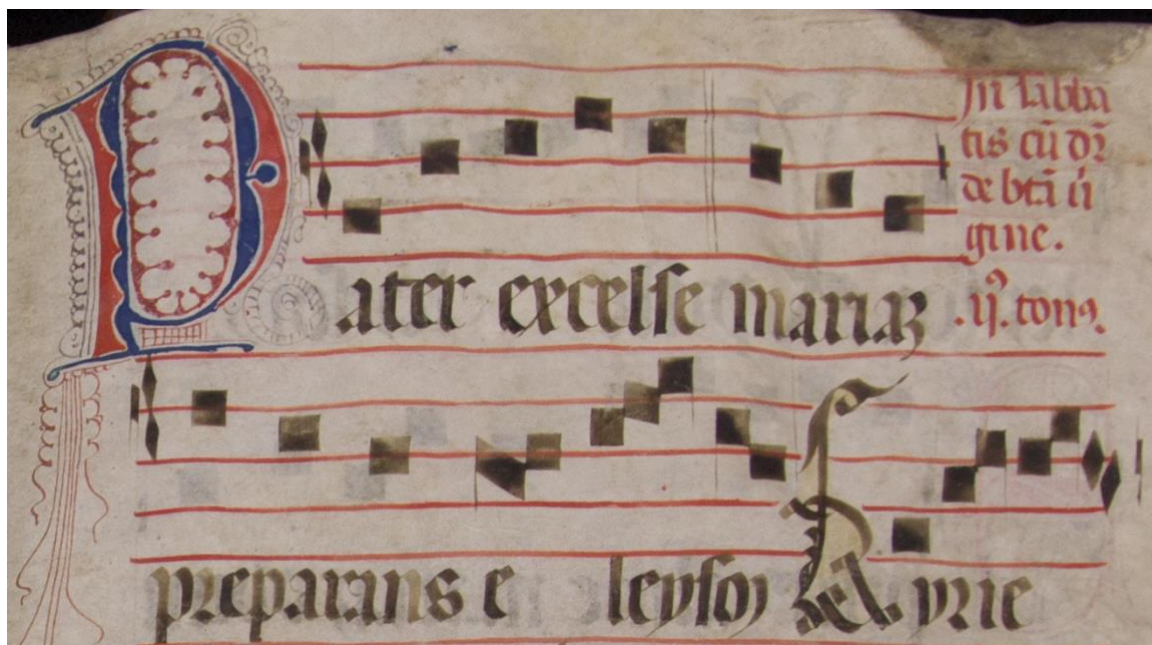 Pater excelse mariaꝫ
In sabba
tis cū dr̄
de btā ū
gine.
.ij. tonꝰ.
preparans e leyson Kyrie